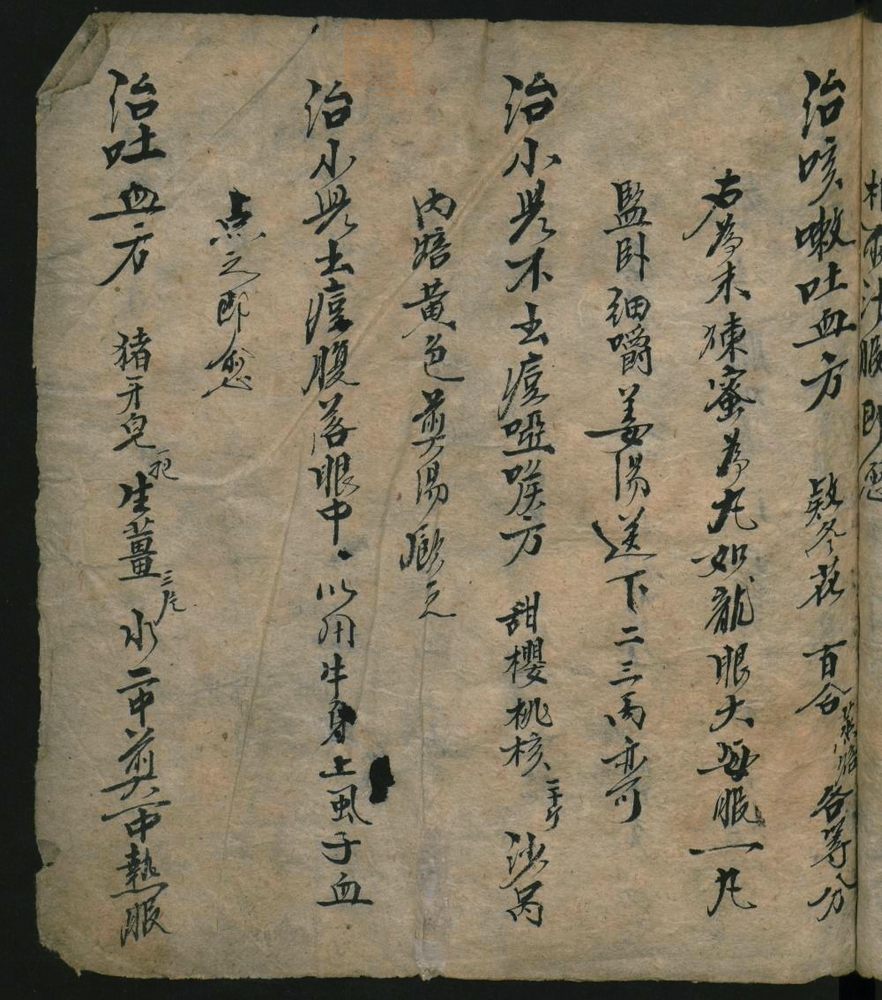 治咳嗽吐血方 欵冬花 百合蒸焙各等分
右為末煉蜜為丸如龍眼大每服一丸
監卧細嚼姜湯送下二三丙亦可
治小児不出痘啞喉方 甜櫻桃核二十个 沙焇
内焙黄色煎湯服之
治小児出痘腹落眼中以用牛身上虱子血
点之即愈
治吐血方 猪牙皂一光 生薑三片 水二中煎一中熱服